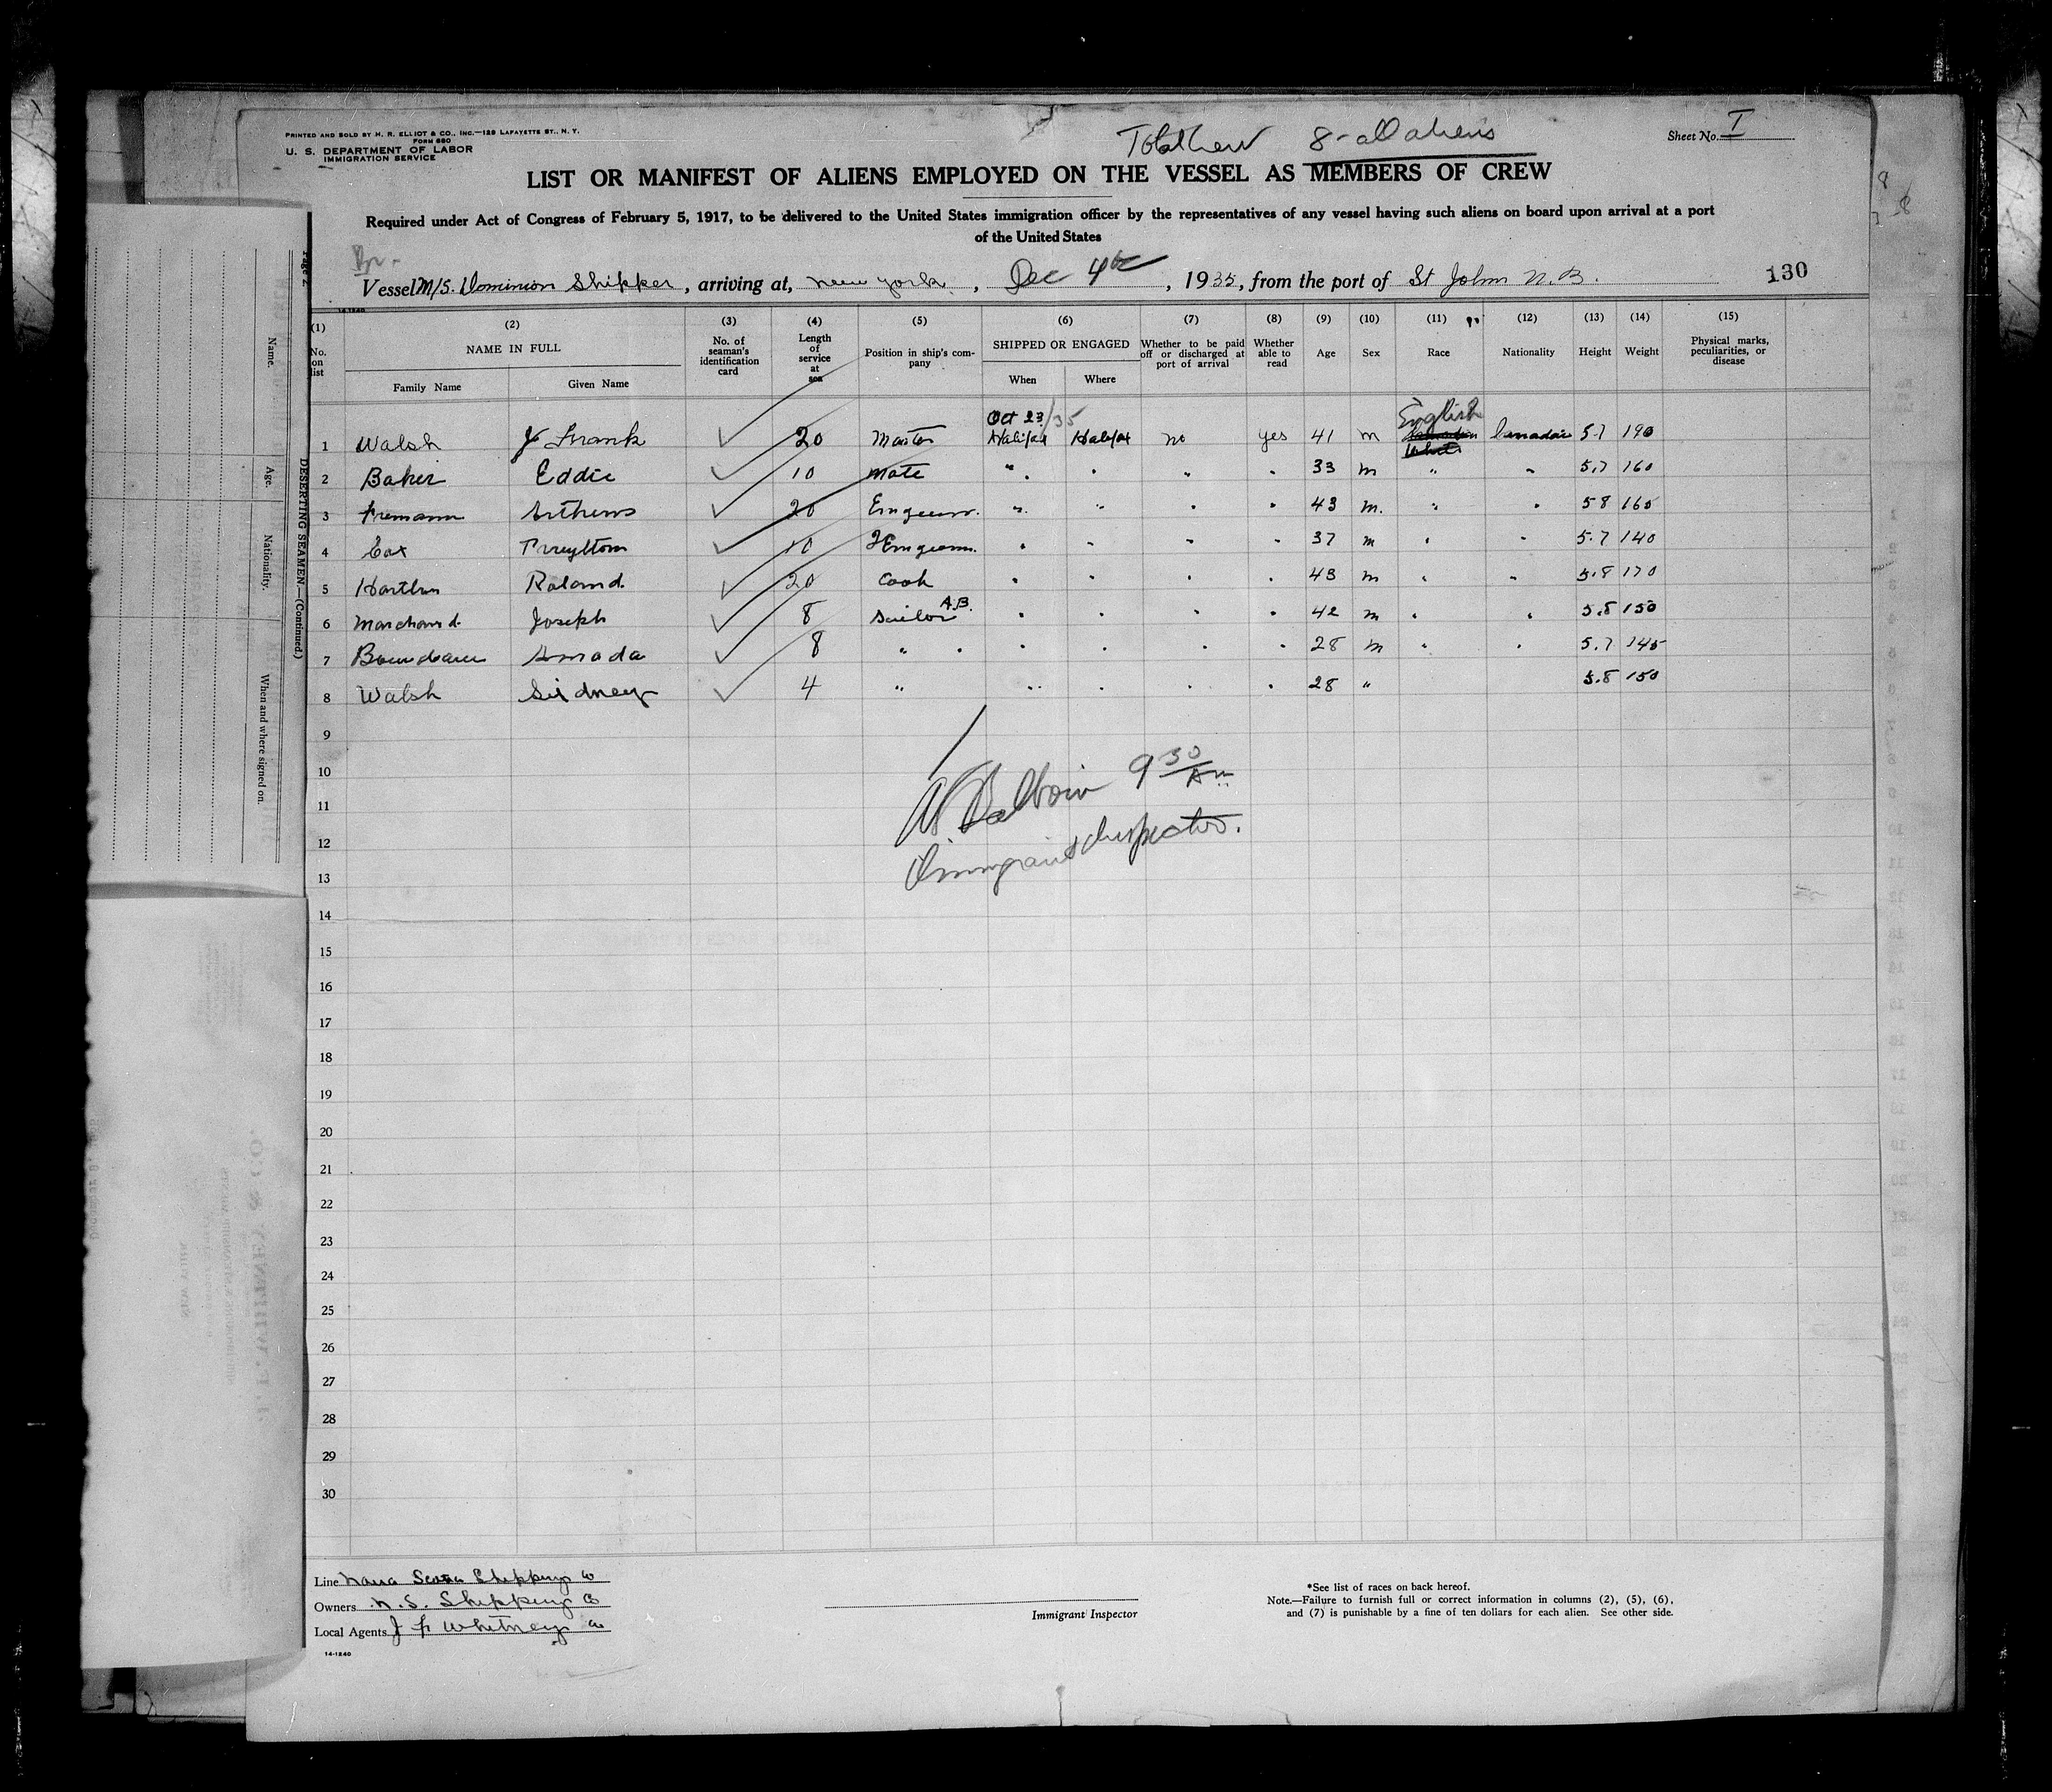 PRINTED AND SOLD BY H. R. ELLIOT & CO., INC.—129 LAFAYETTE ST., N. Y.
FORM 680
U. S. DEPARTMENT OF LABOR
IMMIGRATION SERVICE
Total crew 8 - all aliens
Sheet No. I
LIST OR MANIFEST OF ALIENS EMPLOYED ON THE VESSEL AS MEMBERS OF CREW
Required under Act of Congress of February 5, 1917, to be delivered to the United States immigration officer by the representatives of any vessel having such aliens on board upon arrival at a port
of the United States
Br.
Vessel M/S. Dominion Shipper, arriving at, New York, Dec 4th, 1935, from the port of St John N.B.
130
14-1240
(1) (2) (3) (4) (5) (6) (7) (8) (9) (10) (11) (12) (13) (14) (15)
No. on list NAME IN FULL Family Name Given Name No. of seaman's identification card Length of service at sea Position in ship's company SHIPPED OR ENGAGED When Where Whether to be paid off or discharged at port of arrival Whether able to read Age Sex Race Nationality Height Weight Physical marks, peculiarities, or disease
Oct 23/35 English
1 Walsh J Frank ✓ 20 Master Halifax Halifax no yes 41 m White Canadian 5.7 190
2 Baker Eddie ✓ 10 Mate " " " " 33 m " " 5.7 160
3 ✓ 20 " " " " 43 m. " " 5 8 165
4 Cox ✓ 10 " " " " 37 m " " 5.7 140
5 Roland ✓ 20 Cook " " " " 43 m " " 5.8 170
6 Marchand Joseph ✓ 8 Sailor A.B. " " " " 42 m " " 5.8 150
7 Amada ✓ 8 " " " " " " 28 m " " 5.7 145
8 Walsh Sidney ✓ 4 " " " " " 28 " 5.8 150
9
10
11
12
13
14
15
16
17
18
19
20
21
22
23
24
25
26
27
28
29
30
Baldwin 9 30 Am
Immigrant Inspector.
Line Nova Scotia Shipping Co
Owners N. S. Shipping Co
Local Agents J F Whitney Co
14-1240
Immigrant Inspector
*See list of races on back hereof.
Note.—Failure to furnish full or correct information in columns (2), (5), (6),
and (7) is punishable by a fine of ten dollars for each alien. See other side.
Page 2
DESERTING SEAMEN—(Continued.)
Name. Age. Nationality. When and where signed on.